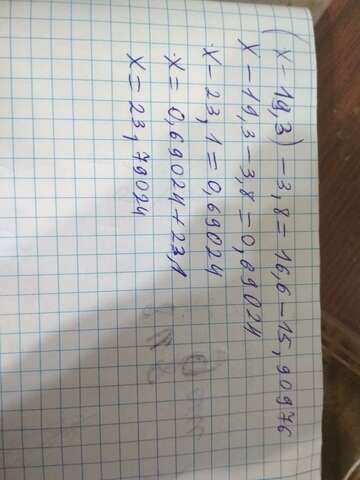 (x-19,3)-3,8=16,6-15,90976
x-19,3-3,8=0,69024
x-23,1=0,69024
x=0,69024+23,1
x=23,79024